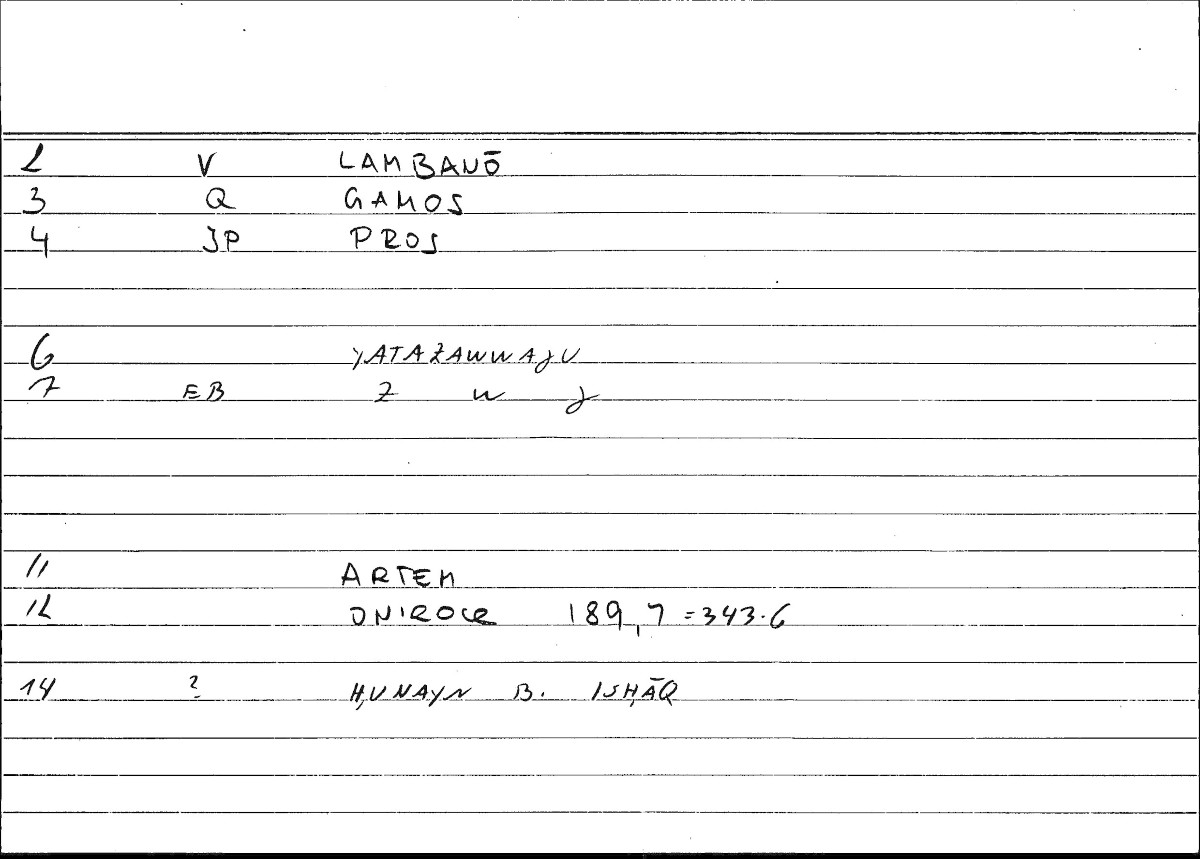 2 V LAMBANŌ
3 Q GAMOS
4 JP PROS
6 YATAZAWWAJU
7 EB Z W J
11 ARTEM
12 ONIROCR 189,7 = 343.6
14 ? ḤUNAYN B. ISḤĀQ